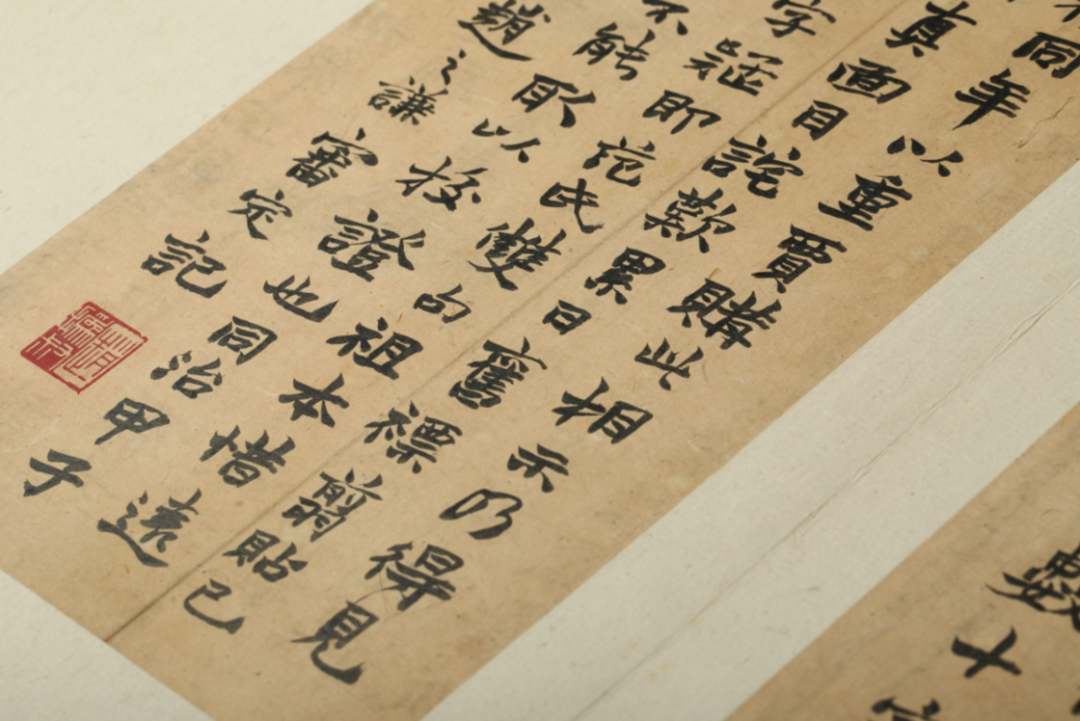 同年以重賈購此相示乃得見
真面目詫歎累日舊褾翦貼已
字疑即范氏雙勾祖本惜遠
不能取以校證也同治甲子
趙之謙審定記
十